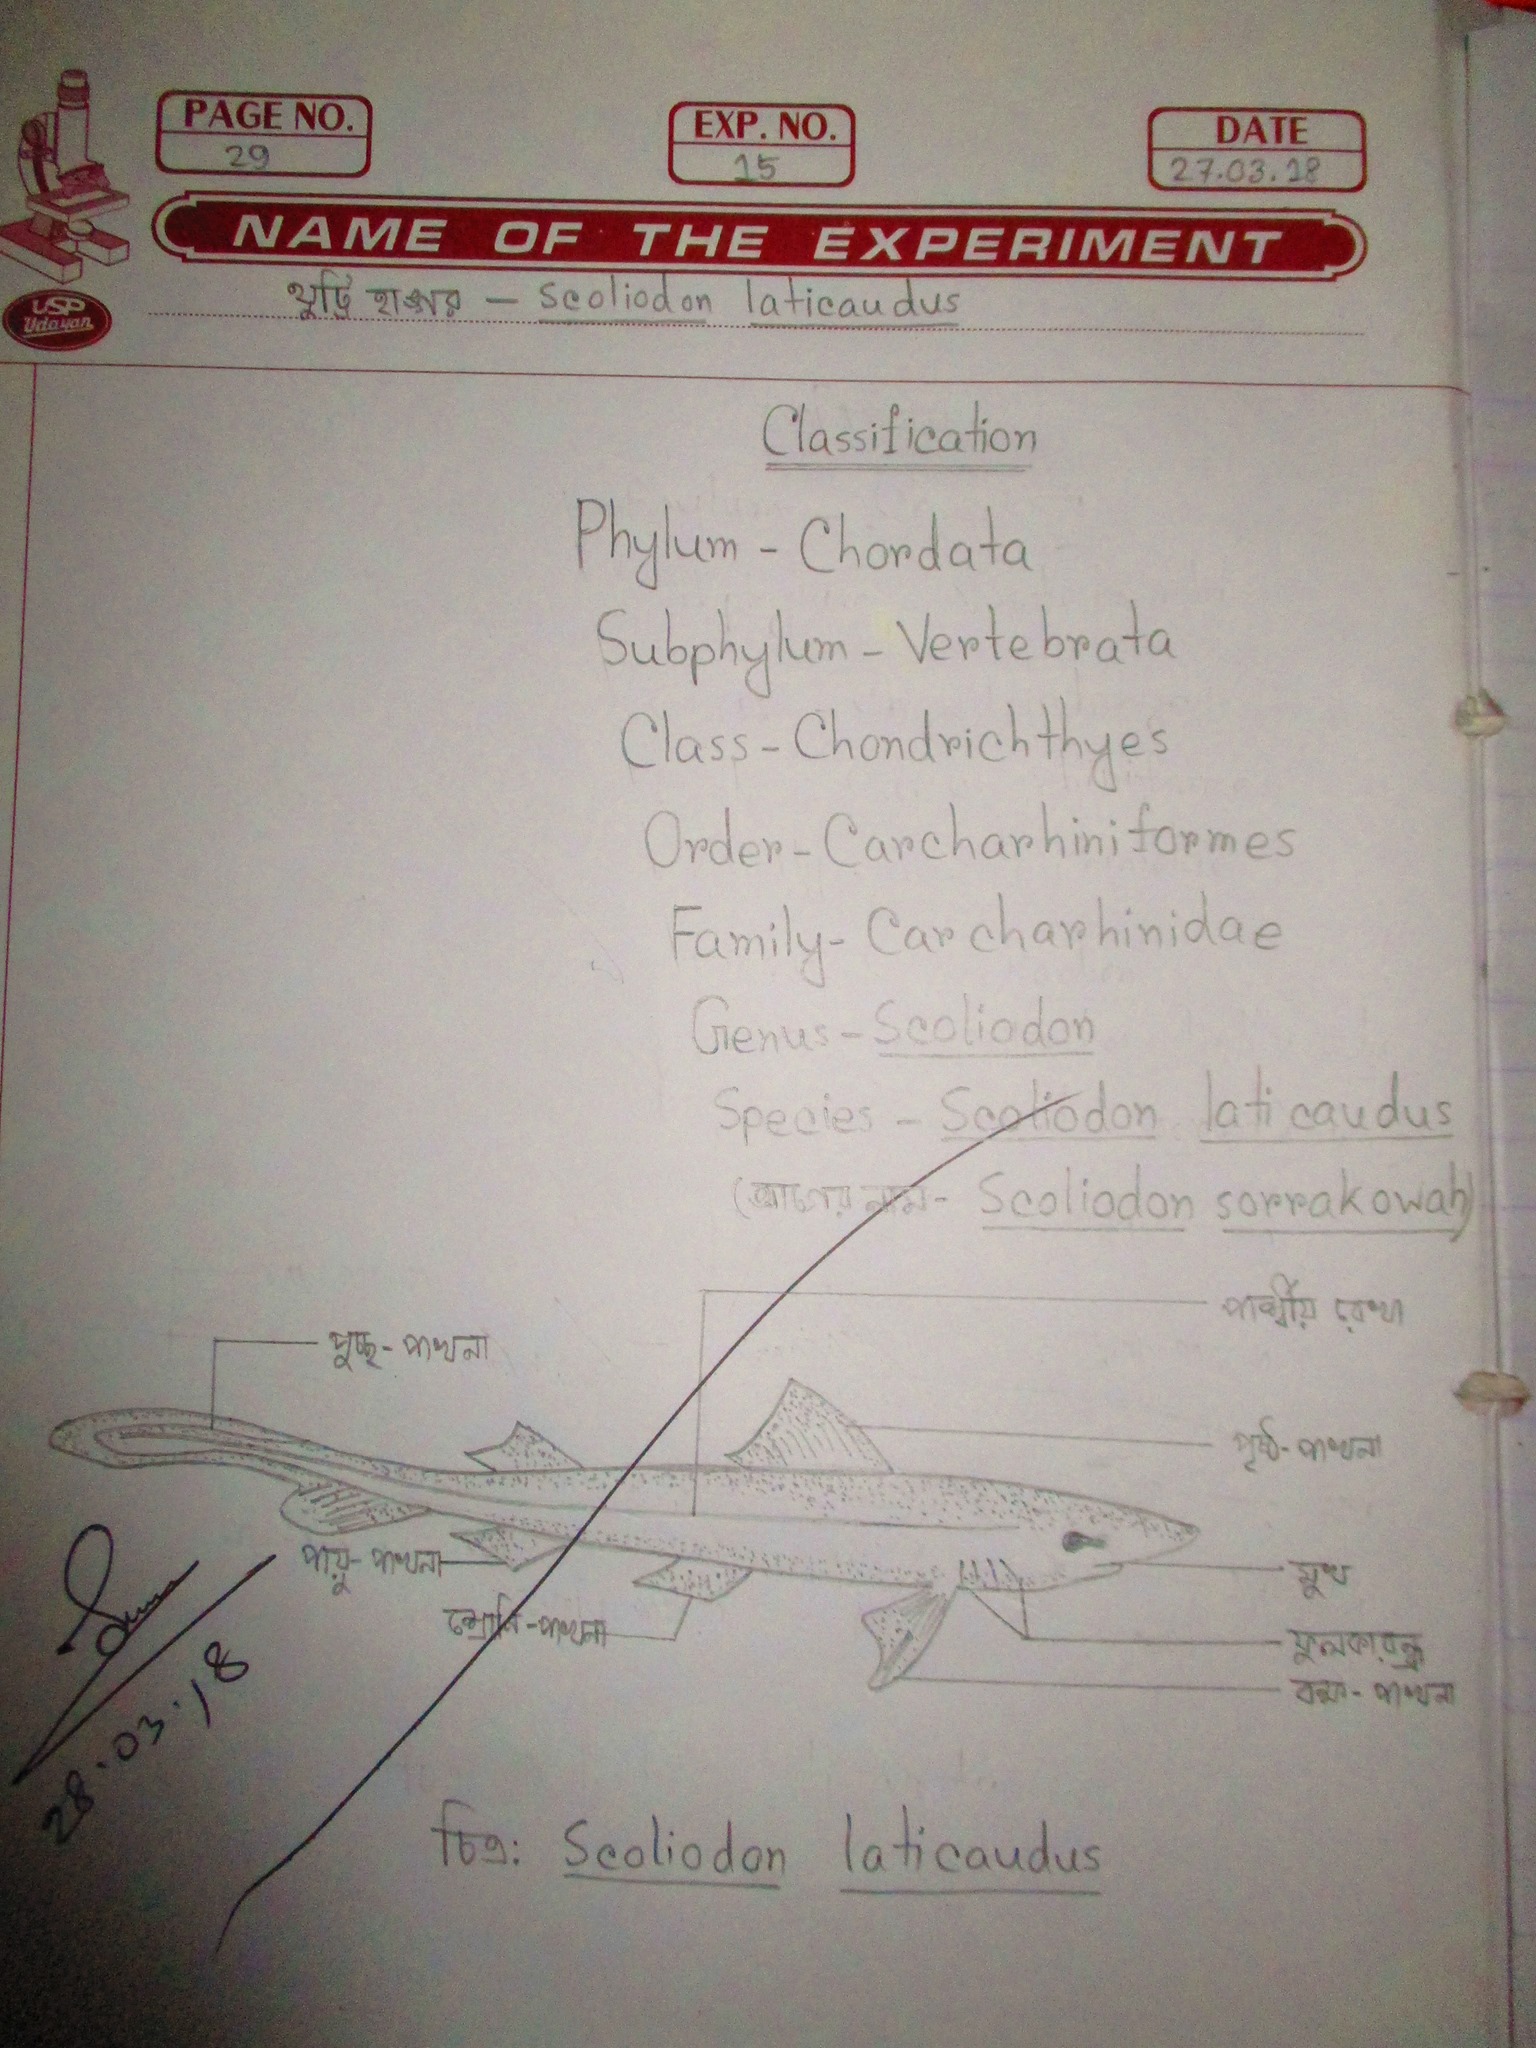 PAGE NO.
29
EXP. NO.
15
DATE
27.03.18
NAME OF THE EXPERIMENT
USP
Udayan
থুট্টি হাঙ্গর - Scoliodon laticaudus
Classification
Phylum - Chordata
Subphylum - Vertebrata
Class - Chondrichthyes
Order - Carcharhiniformes
Family - Carcharhinidae
Genus - Scoliodon
Species - Scoliodon laticaudus
(আগের নাম - Scoliodon sorrakowah)
পার্শ্বীয় রেখা
পুচ্ছ-পাখনা
পৃষ্ঠ-পাখনা
পায়ু-পাখনা
মুখ
শ্রোণি-পাখনা
ফুলকারন্ধ্র
বক্ষ-পাখনা
28.03.18
চিত্র: Scoliodon laticaudus